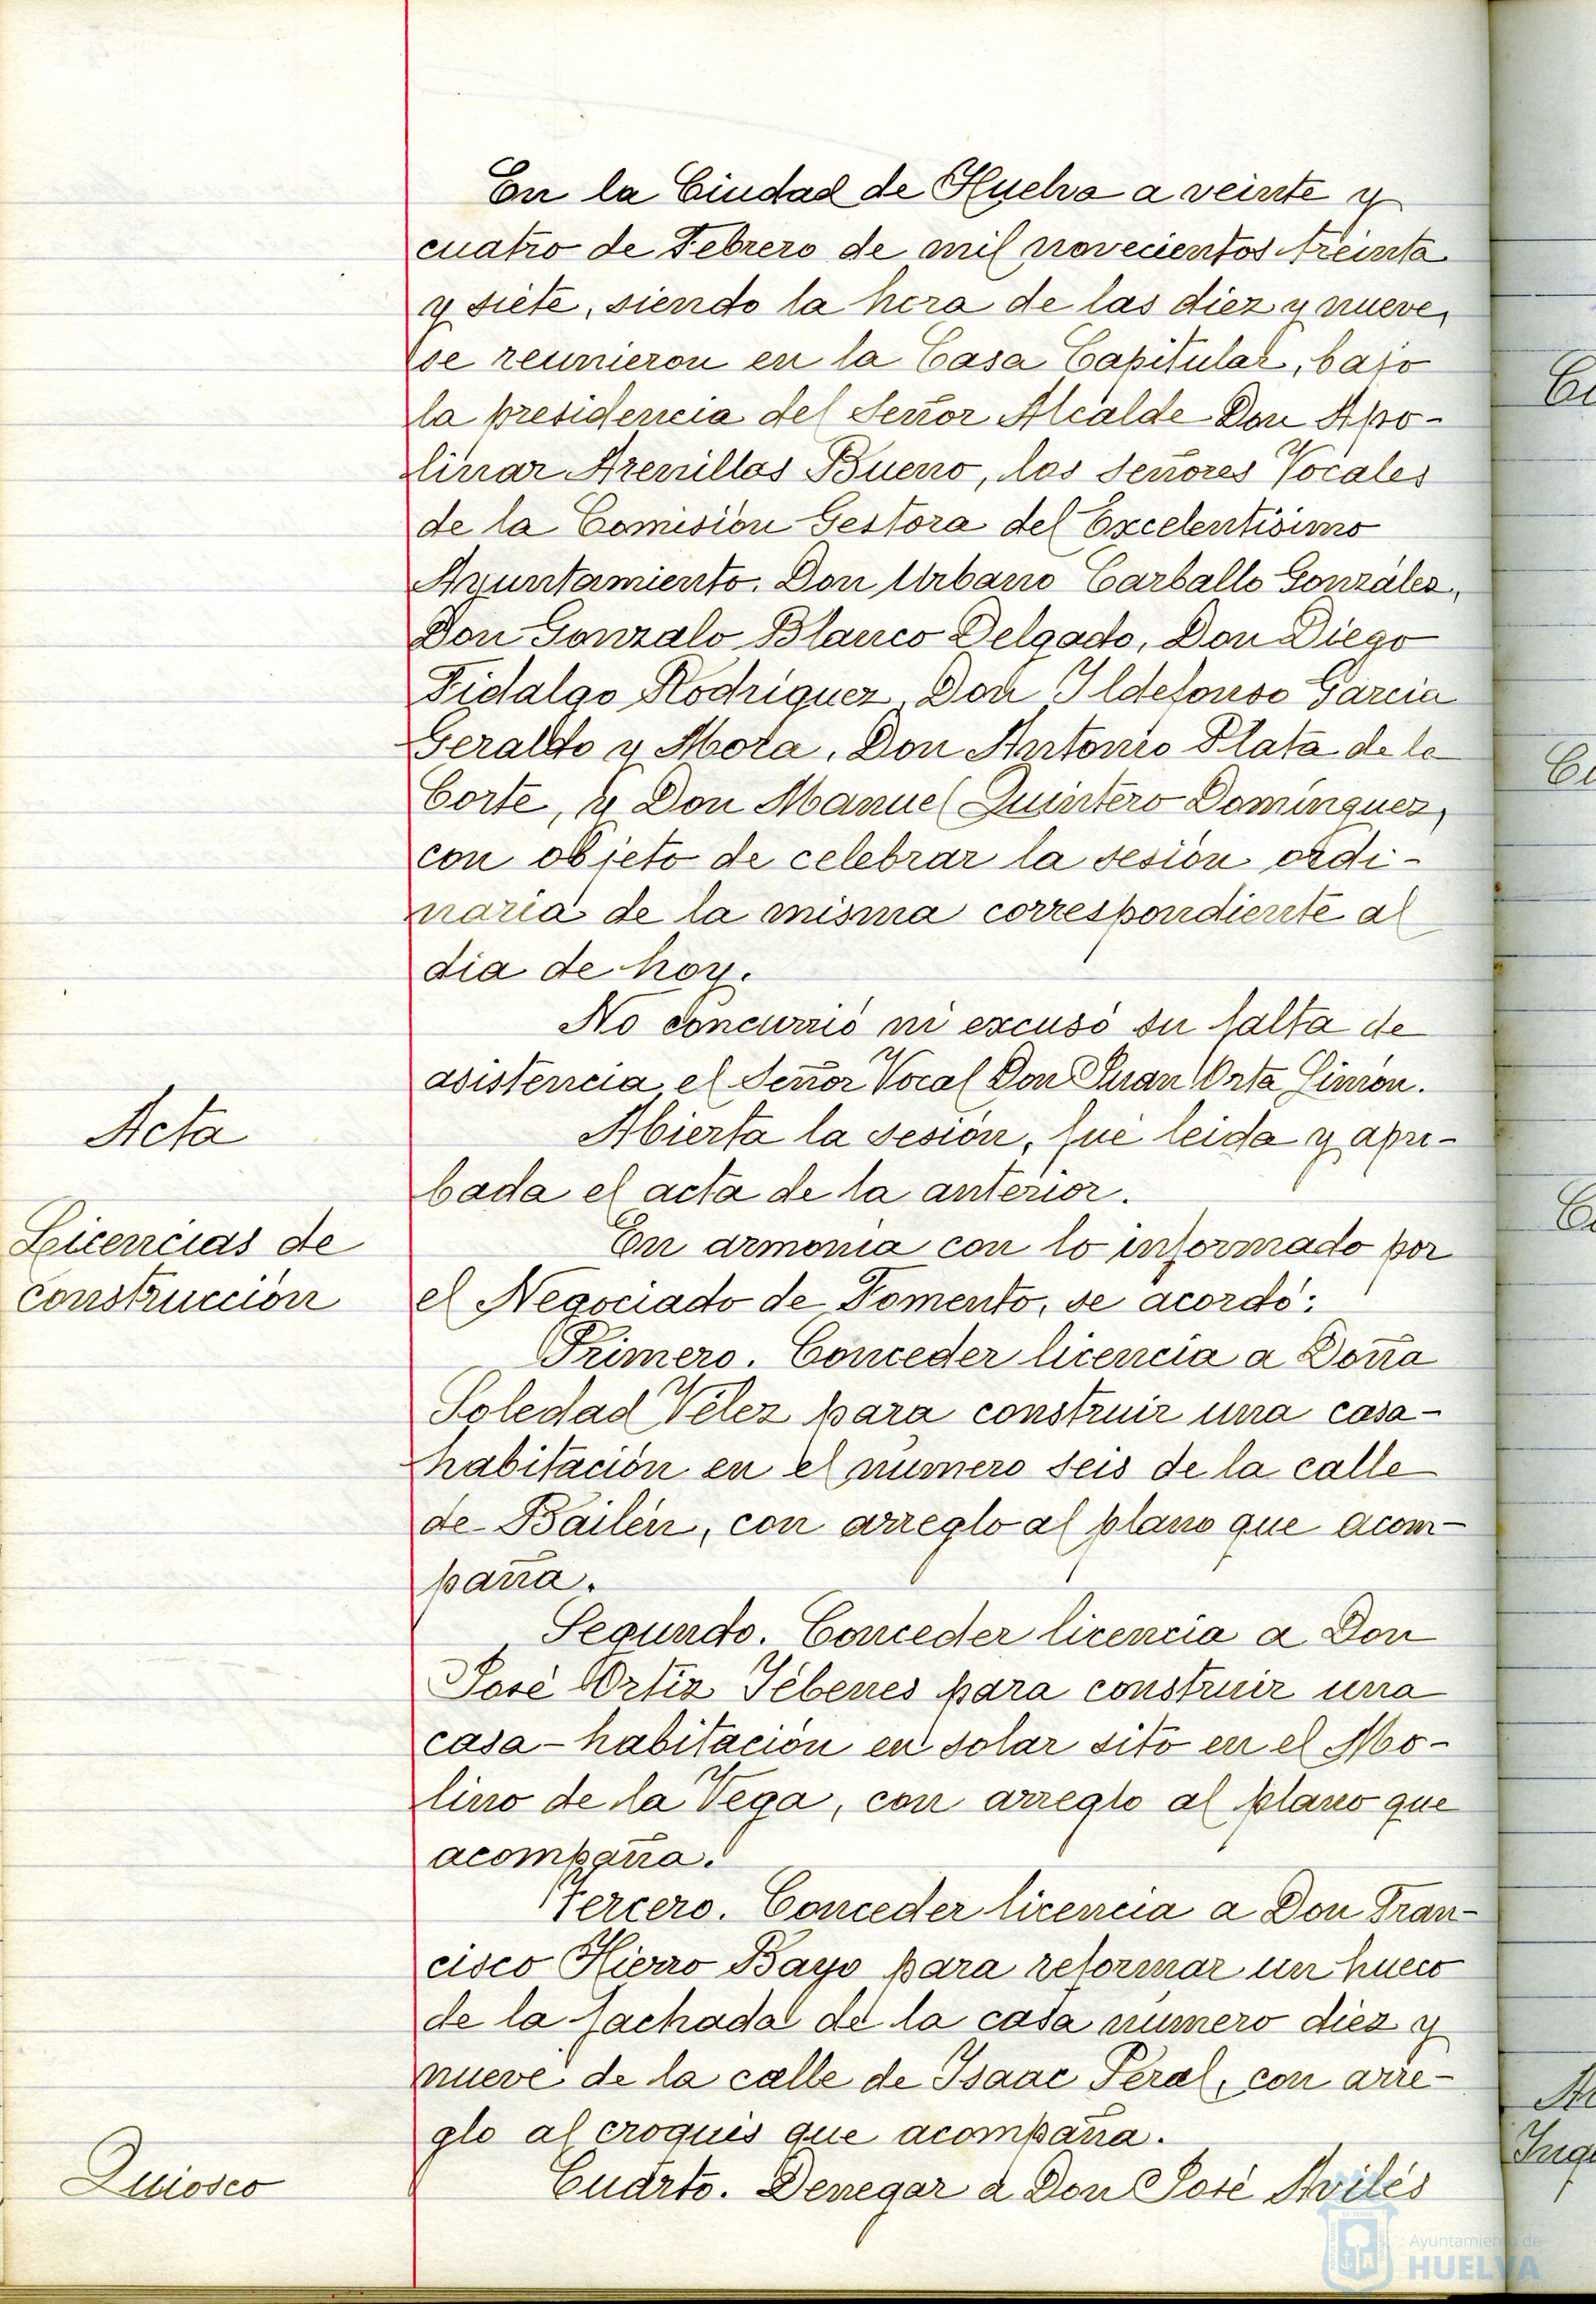 En la Ciudad de Huelva a veinte y
cuatro de Febrero de mil novecientos treinta
y siete, siendo la hora de las diez y nueve,
se reunieron en la Casa Capitular, bajo
la presidencia del Señor Alcalde Don Apo-
linar Arenillas Bueno, los señores Vocales
de la Comisión Gestora del Excelentísimo
Ayuntamiento, Don Urbano Carballo González,
Don Gonzalo Blanco Delgado, Don Diego
Fidalgo Rodríguez, Don Ildefonso García
Geraldo y Mora, Don Antonio Plata de la
Corte, y Don Manuel Quintero Domínguez,
con objeto de celebrar la sesión ordi-
naria de la misma correspondiente al
dia de hoy.
No concurrió ni excusó su falta de
asistencia el Señor Vocal Don Juan Orta Limón.
Acta
Abierta la sesión, fué leida y apro-
bada el acta de la anterior.
Licencias de
construcción
En armonia con lo informado por
el Negociado de Fomento, se acordó:
Primero. Conceder licencia a Doña
Soledad Vélez para construir una casa-
habitación en el número seis de la calle
de Bailén, con arreglo al plano que acom-
paña.
Segundo. Conceder licencia a Don
José Ortiz Yébenes para construir una
casa-habitación en solar sito en el Mo-
lino de la Vega, con arreglo al plano que
acompaña.
Tercero. Conceder licencia a Don Fran-
cisco Hierro Bayo para reformar un hueco
de la fachada de la casa número diez y
nueve de la calle de Isaac Peral, con arre-
glo al croquis que acompaña.
Quiosco
Cuarto. Denegar a Don José Avilés
Ayuntamiento de
HUELVA